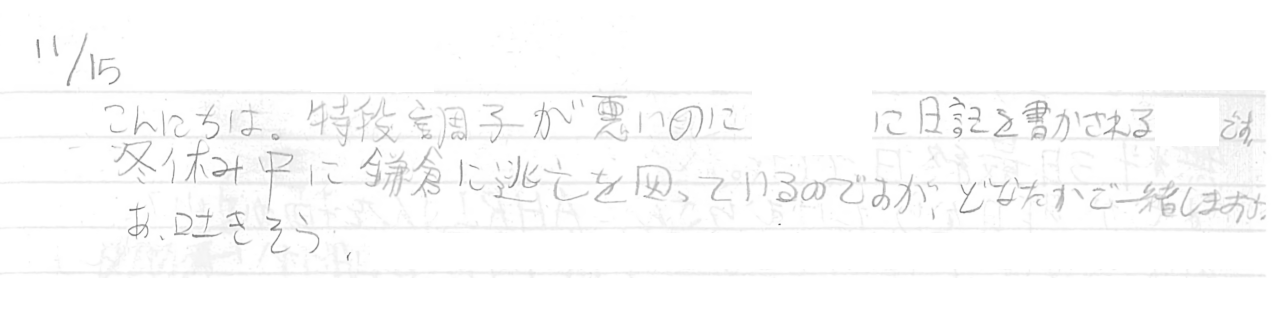 11/15
こんにちは。特段調子が悪いのに に日記を書かされる です。
冬休み中に鎌倉に逃亡を図っているのですが、どなたかご一緒しますか。
あ、吐きそう。